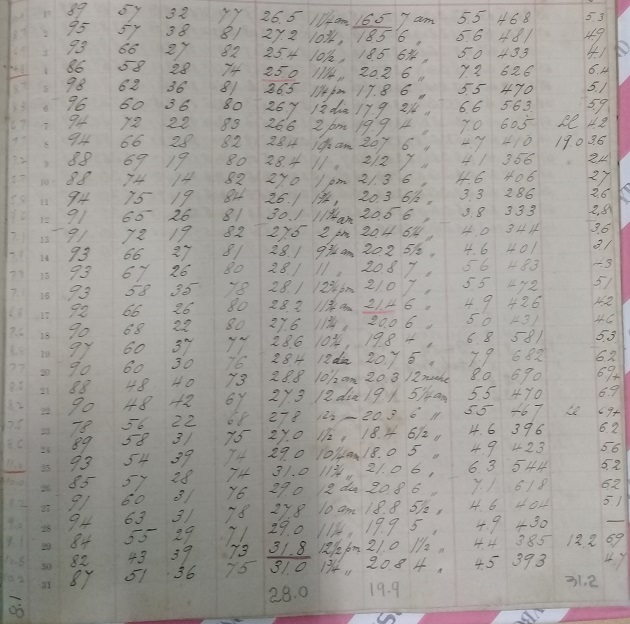 1 89 57 32 77 26.5 11¼ am 16.5 7 am 5.5 468 5.3
2 95 57 38 81 27.2 10¾ „ 18.5 6 „ 5.6 481 49
3 93 66 27 82 25.4 10½ „ 18.5 6¾ „ 5.0 433 4.1
4 86 58 28 74 25.0 11¼ „ 20.2 6 „ 7.2 626 6.4
5 98 62 36 81 26.5 pm 17.8 6 „ 5.5 470 5.1
6 96 60 36 80 26.7 12 dia 17.9 2¼ „ 6.6 563 5.9
7 94 72 22 83 26.6 2 pm 19.9 4 „ 7.0 605 42
8 94 66 28 82 28.4 am 20.7 6 „ 4.7 410 19.0 36
9 88 69 19 80 28.4 11 „ 21.2 7 „ 4.1 356 24
10 88 74 14 82 27.0 1 pm 21.3 6 „ 4.6 406 27
11 94 75 19 84 26.1 1¾ „ 20.3 6½ „ 3.3 286 2.6
12 91 65 26 81 30.1 11¾ am 20.5 6 „ 3.8 333 2.8
13 91 72 19 82 27.5 2 pm 20.4 6¾ „ 4.0 344 36
14 93 66 27 81 28.1 9¾ am 20.2 5½ „ 4.6 401 31
15 93 67 26 80 28.1 11 „ 20.8 7 „ 5.6 483
16 93 58 35 78 28.1 12¾ pm 21.0 7 „ 5.5 472 51
17 92 66 26 80 28.2 11¾ am 21.4 6 „ 4.9 426 42
18 90 68 22 80 27.6 11¾ „ 20.0 6 „ 5.0 431 46
19 97 60 37 77 28.6 10¾ „ 19.8 4 „ 6.8 581 5.3
20 90 60 30 76 28.4 12 dia 20.7 5 „ 7.9 682 62
21 88 48 40 73 28.8 10½ am 20.3 12 noche 8.0 690
22 90 48 42 67 27.3 12 dia 19.1 5¼ am 5.5 470 6.9
23 78 56 22 68 27.8 20.3 6 „ 5.5 467
24 89 58 31 75 27.0 1½ „ 18.4 6½ „ 4.6 396 62
25 93 54 39 74 29.0 10¼ am 18.0 5 „ 4.9 423 56
26 85 57 28 74 31.0 11¾ „ 21.0 6 „ 6.3 544 5.2
27 91 60 31 76 29.0 12 dia 20.8 6 „ 7.1 618 62
28 94 63 31 78 27.8 10 am 18.8 5½ „ 4.6 404 51
29 84 55 29 71 29.0 11¼ „ 19.9 5 „ 4.9 430 —
30 82 43 39 73 31.8 12½ pm 21.0 1½ „ 4.4 385 12.2 69
31 87 51 36 75 31.0 1¾ „ 20.8 4 „ 4.5 393 4.7
28.0 19.9 31.2